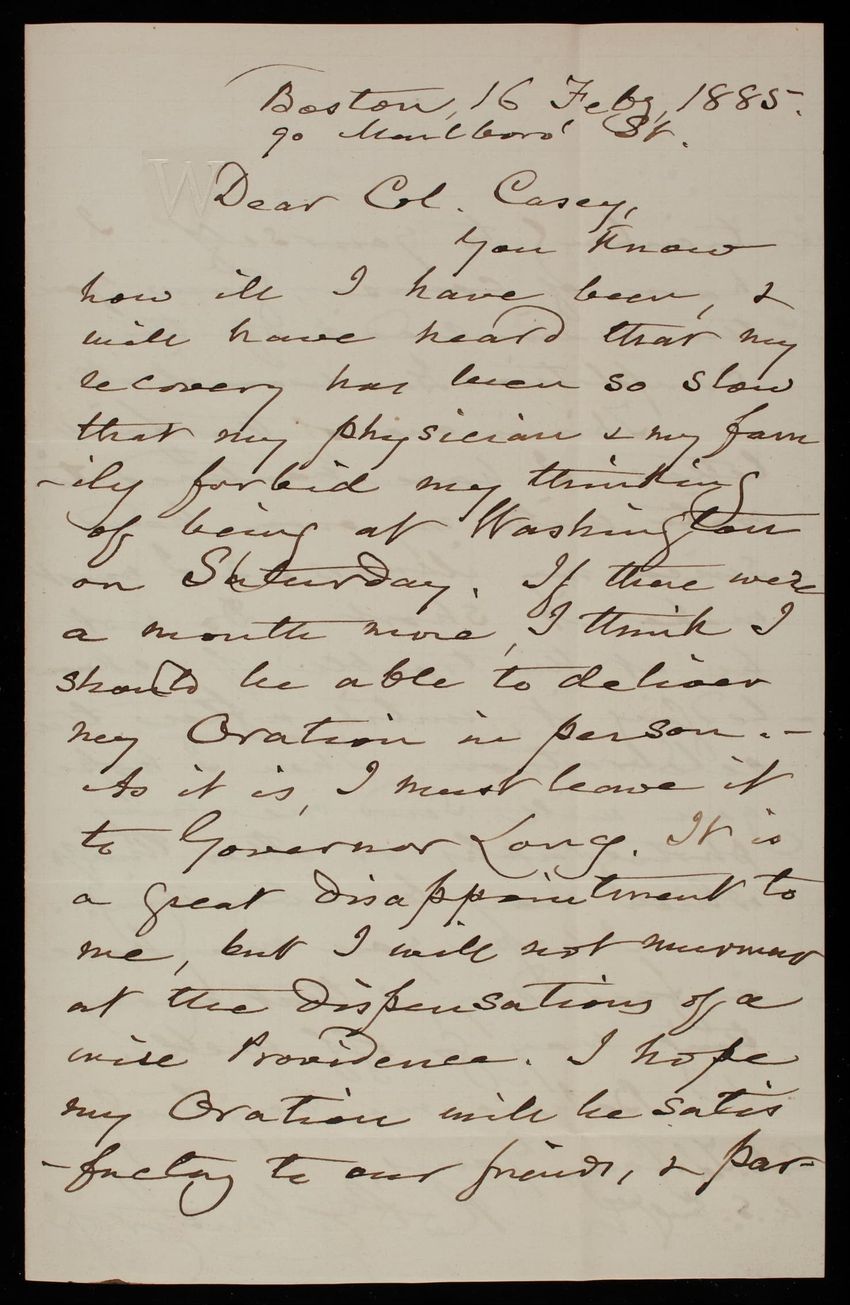 Boston, 16 Feby, 1885.
90 Marlboro' St.
W
Dear Col. Casey,
You know
how ill I have been, &
will have heard that my
recovery has been so slow
that my physician & my fam
-ily forbid my thinking
of being at Washington
on Saturday. If there were
a month more, I think I
should be able to deliver
my Oration in person. -
As it is, I must leave it
to Governor Long. It is
a great disappointment to
me, but I will not murmur
at the dispensations of a
wise Providence. I hope
my Oration will be satis
-factory to our friends, & par-